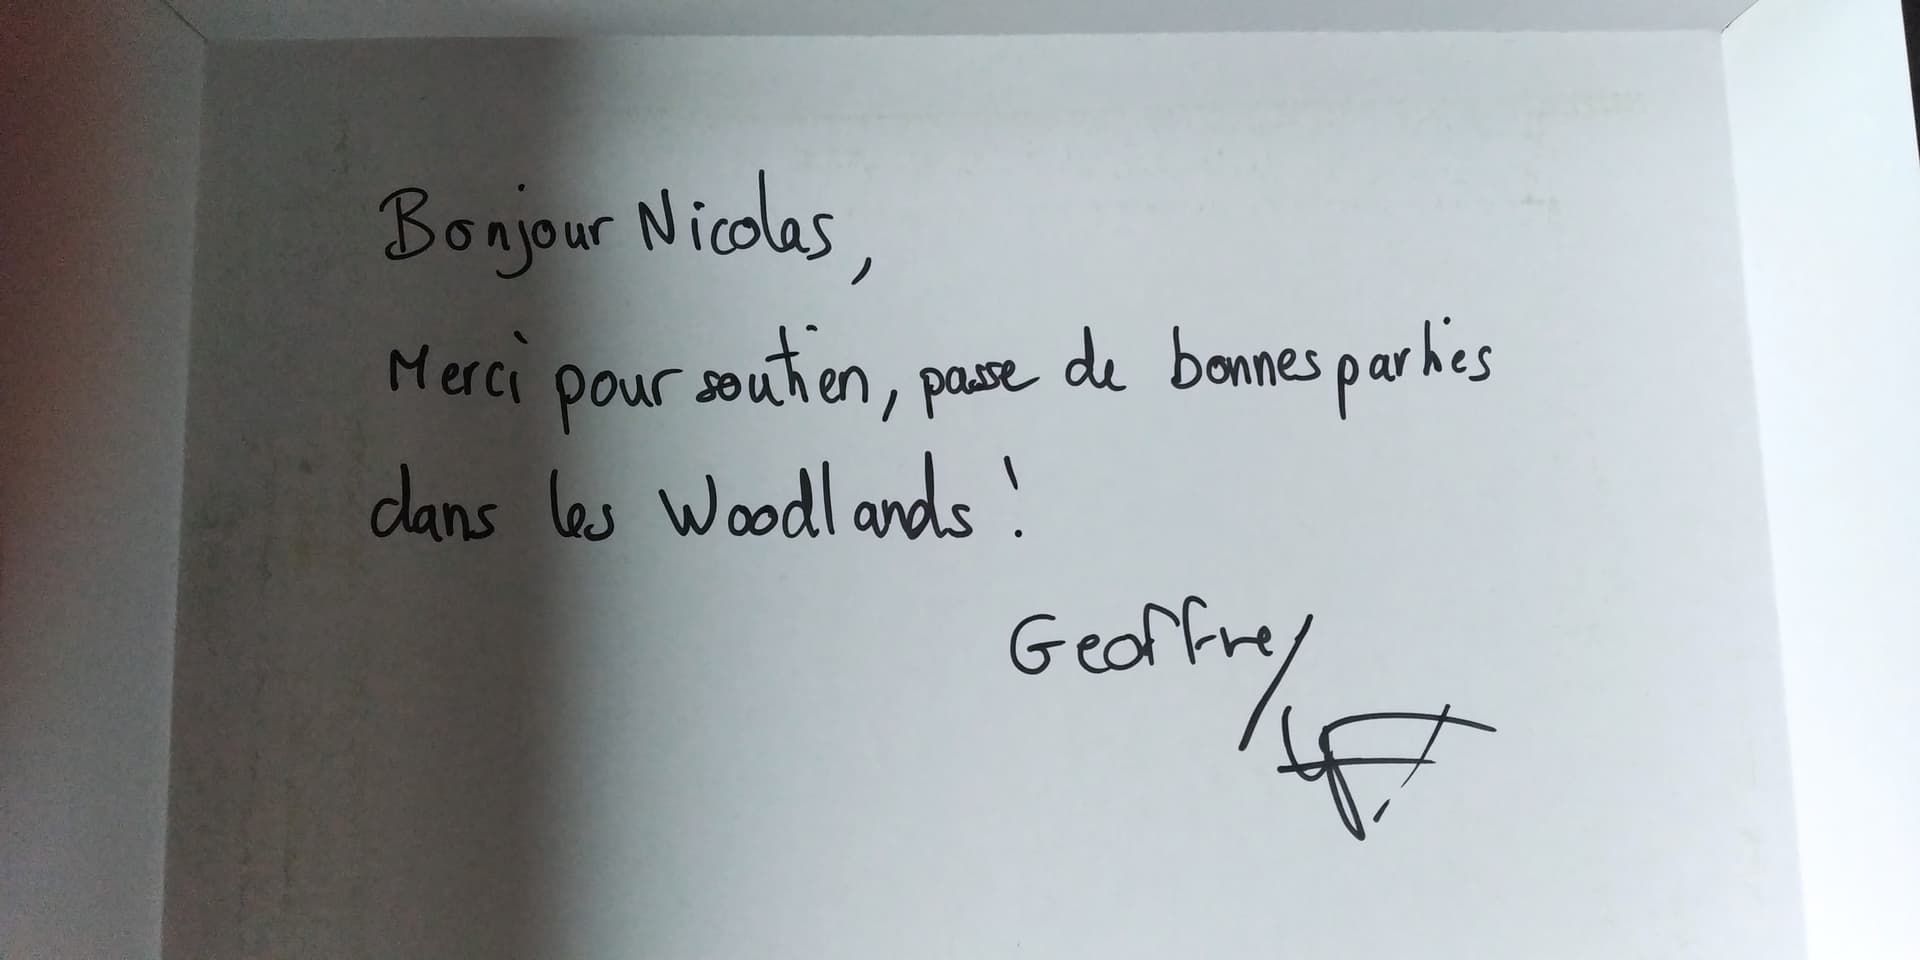 Bonjour Nicolas,
Merci pour soutien, passe de bonnes parties
dans les Woodlands !
Geoffrey